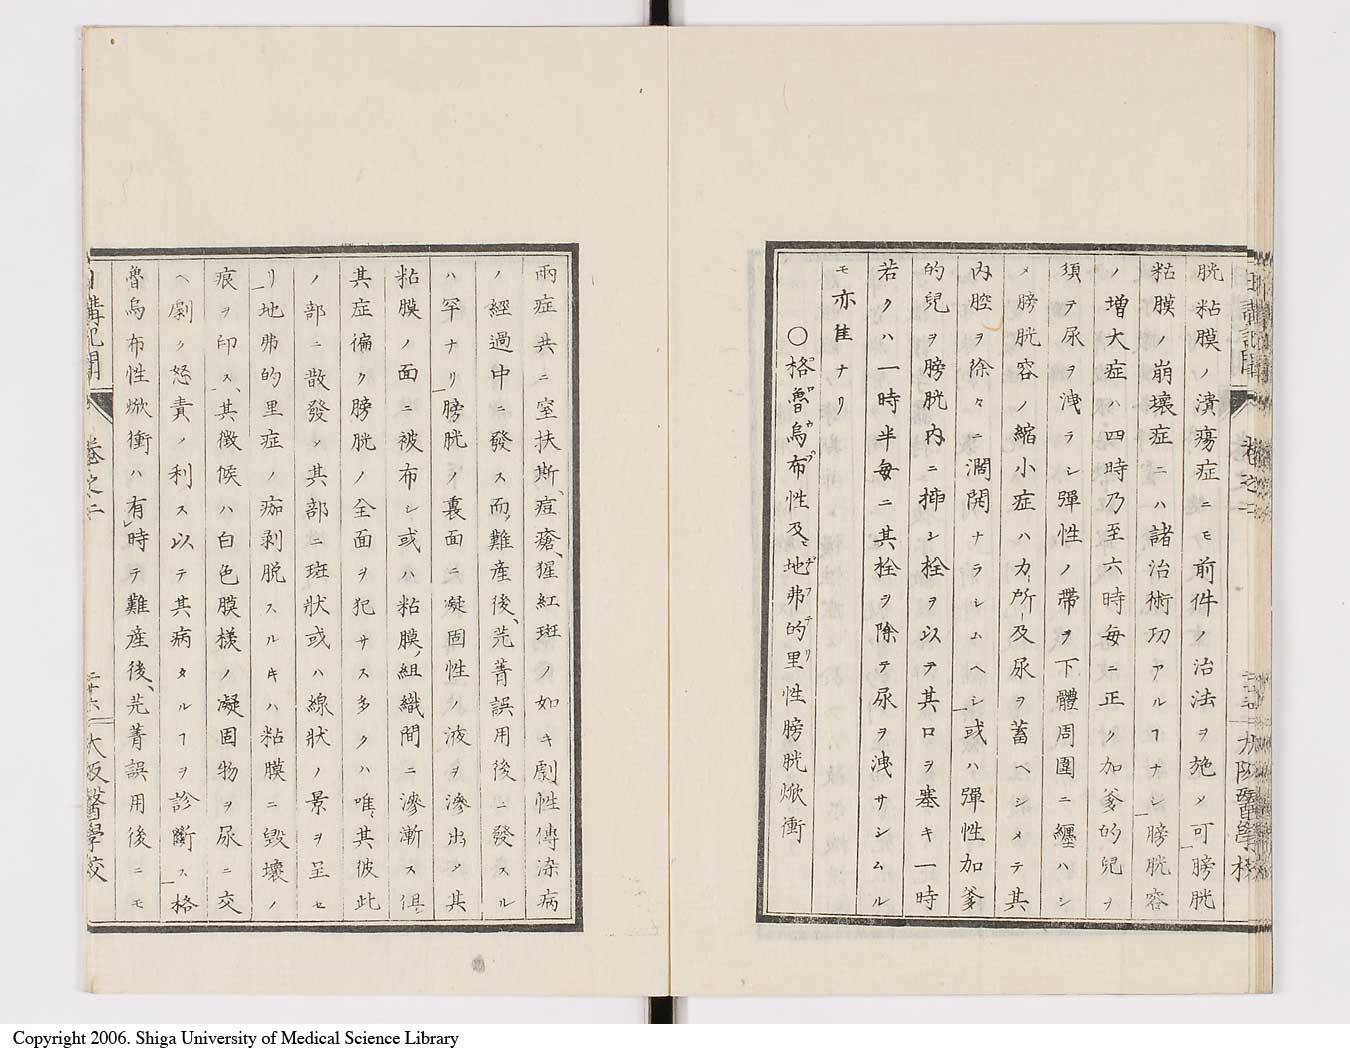 胱粘膜ノ潰瘍症ニモ前件ノ治法ヲ施メ可膀胱
粘膜ノ崩壞症ニハ諸治術功アルヿナシ膀胱容
ノ増大症ハ四時乃至六時毎ニ正ク加爹的兒ヲ
須テ尿ヲ洩ラシ彈性ノ帶ヲ下體周圍ニ纒ハシ
メ膀胱容ノ縮小症ハ力所及尿ヲ蓄ヘシメテ其
内腔ヲ徐々ニ濶開ナラシムヘシ或ハ彈性加爹
的兒ヲ膀胱内ニ揷シ栓ヲ以テ其口ヲ塞キ一時
若クハ一時半毎ニ其栓ヲ除テ尿ヲ洩サシムル
モ亦佳ナリ
〇格魯烏布性及ヒ地弗的里性膀胱焮衝
兩症共ニ窒扶斯、痘瘡、猩紅斑ノ如キ劇性傳染病
ノ經過中ニ發ス而難産後、芫菁誤用後ニ發スル
ハ罕ナリ膀胱ノ裏面ニ凝固性ノ液ヲ滲出シ其
粘膜ノ面ニ被布シ或ハ粘膜組織間ニ滲漸ス倶
其症徧ク膀胱ノ全面ヲ犯サス多クハ唯其彼此
ノ部ニ散發シ其部ニ斑狀或ハ線狀ノ景ヲ呈セ
リ地弗的里症ノ痂剥脱スルキハ粘膜ニ毀壞ノ
痕ヲ印ス、其徴候ハ白色膜樣ノ凝固物ヲ尿ニ交
ヘ劇ク怒責ノ利ス以テ其病タルヿヲ診斷ス格
魯烏布性焮衝ハ有時テ難産後、芫菁誤用後ニモ
日講記聞 卷之二 二十六 大阪醫學校
Copyright 2006. Shiga University of Medical Science Library